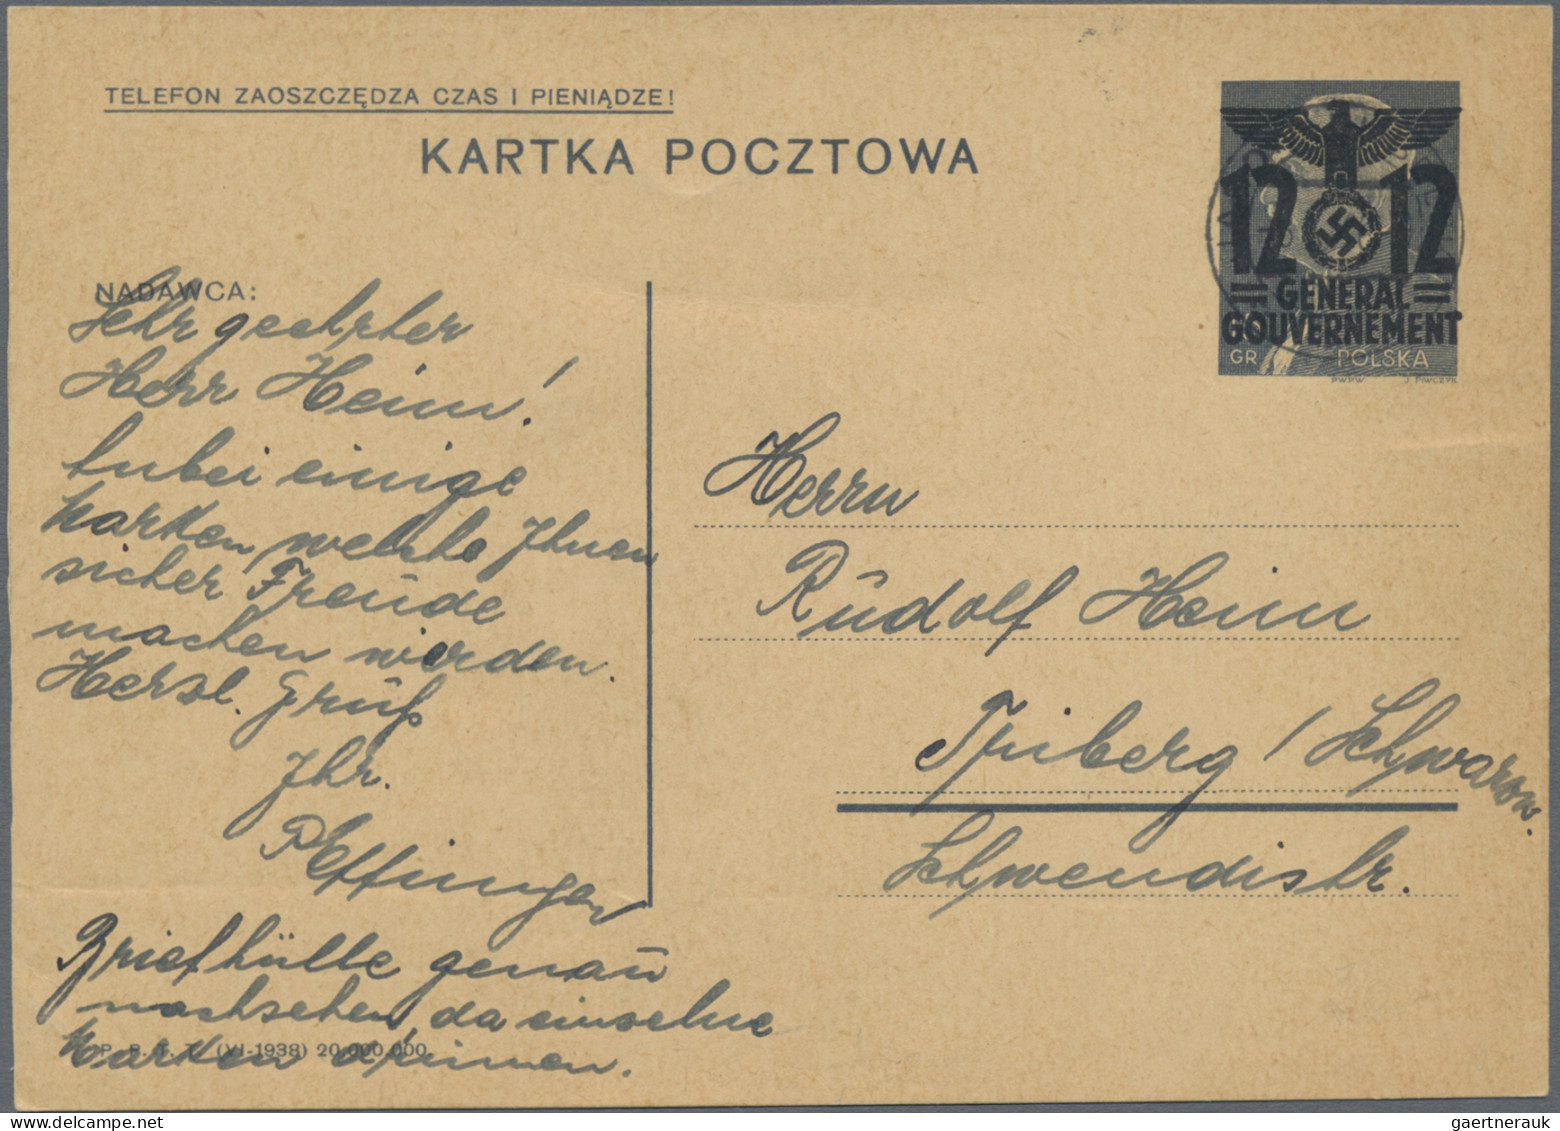 TELEFON ZAOSZCZĘDZA CZAS I PIENIĄDZE!
KARTKA POCZTOWA
12 12
GENERAL
GOUVERNEMENT
GR POLSKA
PWPW
NADAWCA:
Sehr geehrter
Herr Heim!
Anbei einige
Karten welche Ihnen
sicher Freude
machen werden.
Herzl. Gruß
Ihr.
PEffinger
Briefhülle genau
nachsehen, da einzelne
Karten drinnen.
Herrn
Rudolf Heim
Triberg / Schwarzw.
Schwendistr.
(VI-1938) 20.000.000.
gaertnerauk